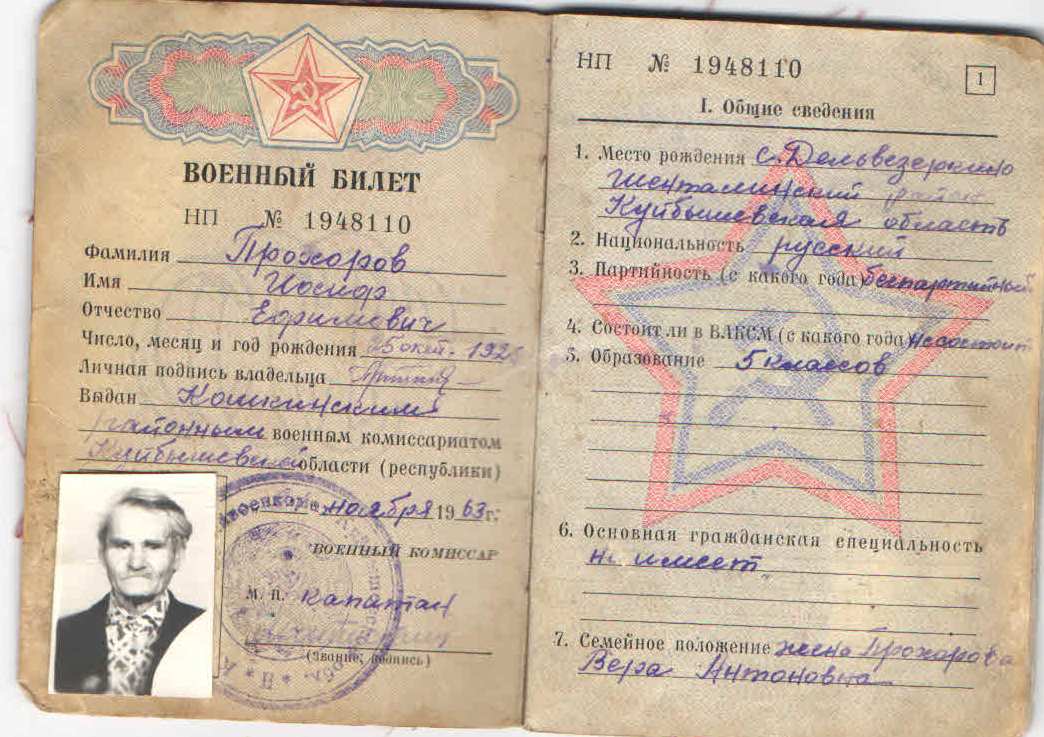 ВОЕННЫЙ БИЛЕТ
НП № 1948110
Фамилия Прохоров
Имя Иосиф
Отчество Ефимович
Число, месяц и год рождения окт. 192
Личная подпись владельца
Выдан Кошкинским
районным военным комиссариатом
Куйбышевской области (республики)
ноября 1963 г.
ВОЕННЫЙ КОМИССАР
М. П. капитан
(звание, подпись)
НП № 1948110
1
I. Общие сведения
1. Место рождения с.
Шенталинский район
Куйбышевская область
2. Национальность русский
3. Партийность (с какого года) беспартийный
4. Состоит ли в ВЛКСМ (с какого года) не состоит
5. Образование 5 классов
6. Основная гражданская специальность
не имеет
7. Семейное положение жена Прохорова
Вера Антоновна